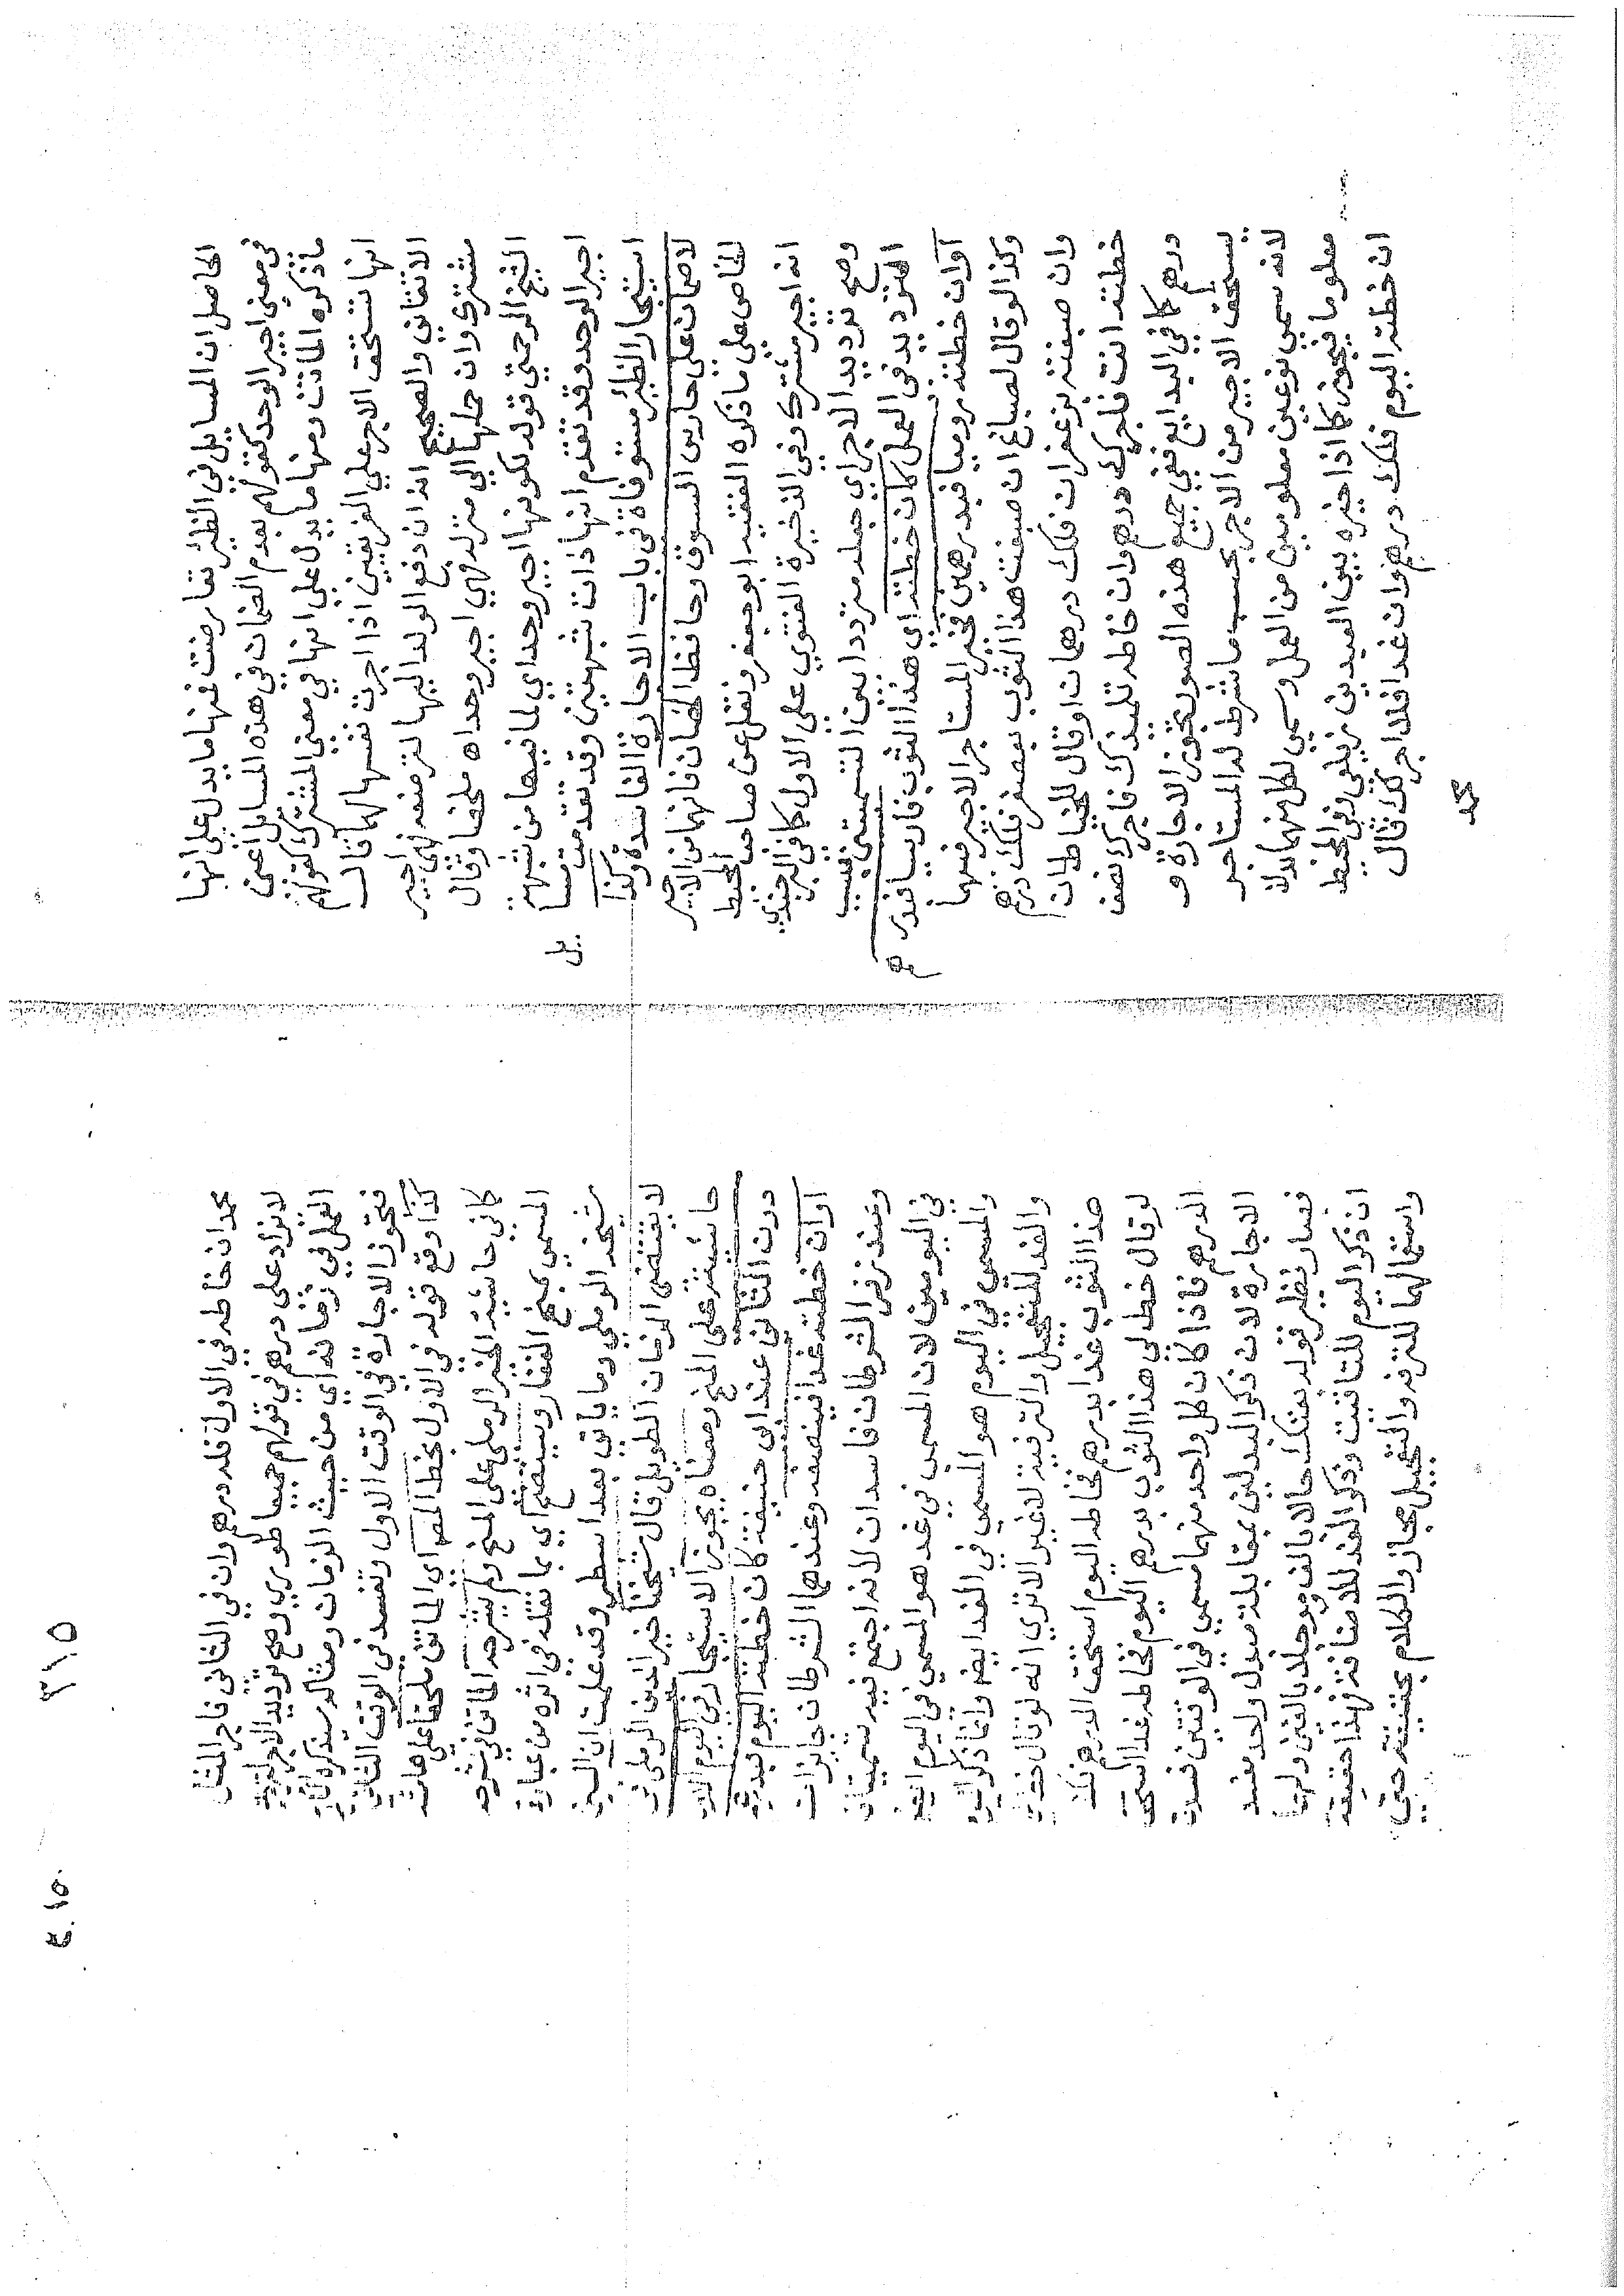 الحاصل ان المسايل في الظئر تعارضت فمنها ما يدل على انها
في معنى اجير الوحد كقولهم بعدم الضمان في هذه المسايل
ما ذكره الماتن ومنها ما يدل على انها في معنى المشترك كقولهم
انها تستحق الاجر على الفريقين اذا اجرت نفسها لهما قال
الاتقاني والصحيح انه ان دفع الولد اليها لترضعه فهي اجير
مشترك وان حملها الي منزله فهي اجير وحد اه ملخصا وقال
الشيخ الرحمتي قوله لكونها اجير وحد اي لما فيها من شبهة
اجير الوحد وقد تقدم انها ذات شبهتين وقد تقدمت
استيجار الظئر مستوفاة في باب الاجارة الفاسدة وكذا
لا ضمان علي حارس السوق وحافظ الخان فانهما من الاجير
الخاص علي ما ذكره الفقيه ابو جعفر ونقل عن صاحب المحيط
انه اجير مشترك وفي الذخيرة الفتوي علي الاول كما في البرجندي
وصح ترديد الاجر اي جعله مترددا بين التسميتين
الترديد في العمل كان خطته اي هذا الثوب فارسيا فبدرهم
اوان خطته روميا فبدرهمين فخير المستاجر الاجير فيهما
وكذا لو قال لصباغ ان صبغت هذا الثوب بعصفر فلك درهم
وان صبغته بزعفران فلك درهمان او قال لخياط ان
خطته انت فاجرك درهم وان خاطه تلميذك فاجرك نصف
درهم كما في البدايع ففي جميع هذه الصور تجوز الاجارة و
يستحق الاجير من الاجر بحسب ما شرط له المستاجر
لانه سمي نوعين معلومين من العمل وسمي لكل منهما بدلا
معلوما فيجوز كما اذا خيره بين العبدين زيلعي وفي المحيط
ان خطته اليوم فلك درهم وان غدا فلا اجر لك قال
محمد
محمد ان خاطه في الاول فله درهم وان في الثاني فاجر المثل
لا يزاد على درهم في قولهم جميعا طوري وصح ترديد الاجر
العمل في زمانه اي من حيث الزمان ومثاله سيذكره
فتجوز الاجارة في الوقت الاول وتفسد في الوقت الثاني
كذا وقع قوله في الاول بخط المص اي الماتن ملحقا على
كما في حاشية الخير الرملي على المنح ولم يشرحه الماتن في شرحه
المسمى بمنح الغفار وسيتضح اي بما نقله في اثره من عبارة
شيخه الرملي وما ياتي بعد اسطر وقد علمت ان
لا يقتضي الزمان الطويل قال شيخنا خير الدين الرملي في
حاشيته على المنح ومعناه يجوز الاستيجار في اليوم الاول
دون الثاني عند ابي حنيفة كان خطته اليوم فبدرهم
اوان خطته غدا فبنصفه وعندهما الشرطان جايزان
وعند زفر الشرطان فاسدان لانه اجتمع فيه تسميتان
في اليومين لان المسمى في غد هو المسمى في اليوم
والمسمى في اليوم هو المسمى في الغد ايضا وانما ذكر اليوم
والغد للتعجيل والترفيه لا غير الا ترى انه لو قال خط لي
هذا الثوب غدا بدرهم فخاطه اليوم استحق الدرهم
لو قال خط لي هذا الثوب بدرهم اليوم فخاطه غدا استحق
الدرهم فاذا كان كل واحد منهما مسمى في الوقتين فسدت
الاجارة لان ذكر البدلين بمقابلة مبدل واحد مفسد
فصار نظير قوله بعتك حالا بالف وموجلا بالفين ولهما
ان ذكر اليوم للتاقيت وذكر الغد للاضافة فهذا حقيقة
واستعمالهما للترفه والتعجيل مجاز والكلام بحقيقته حتى
٣١٥